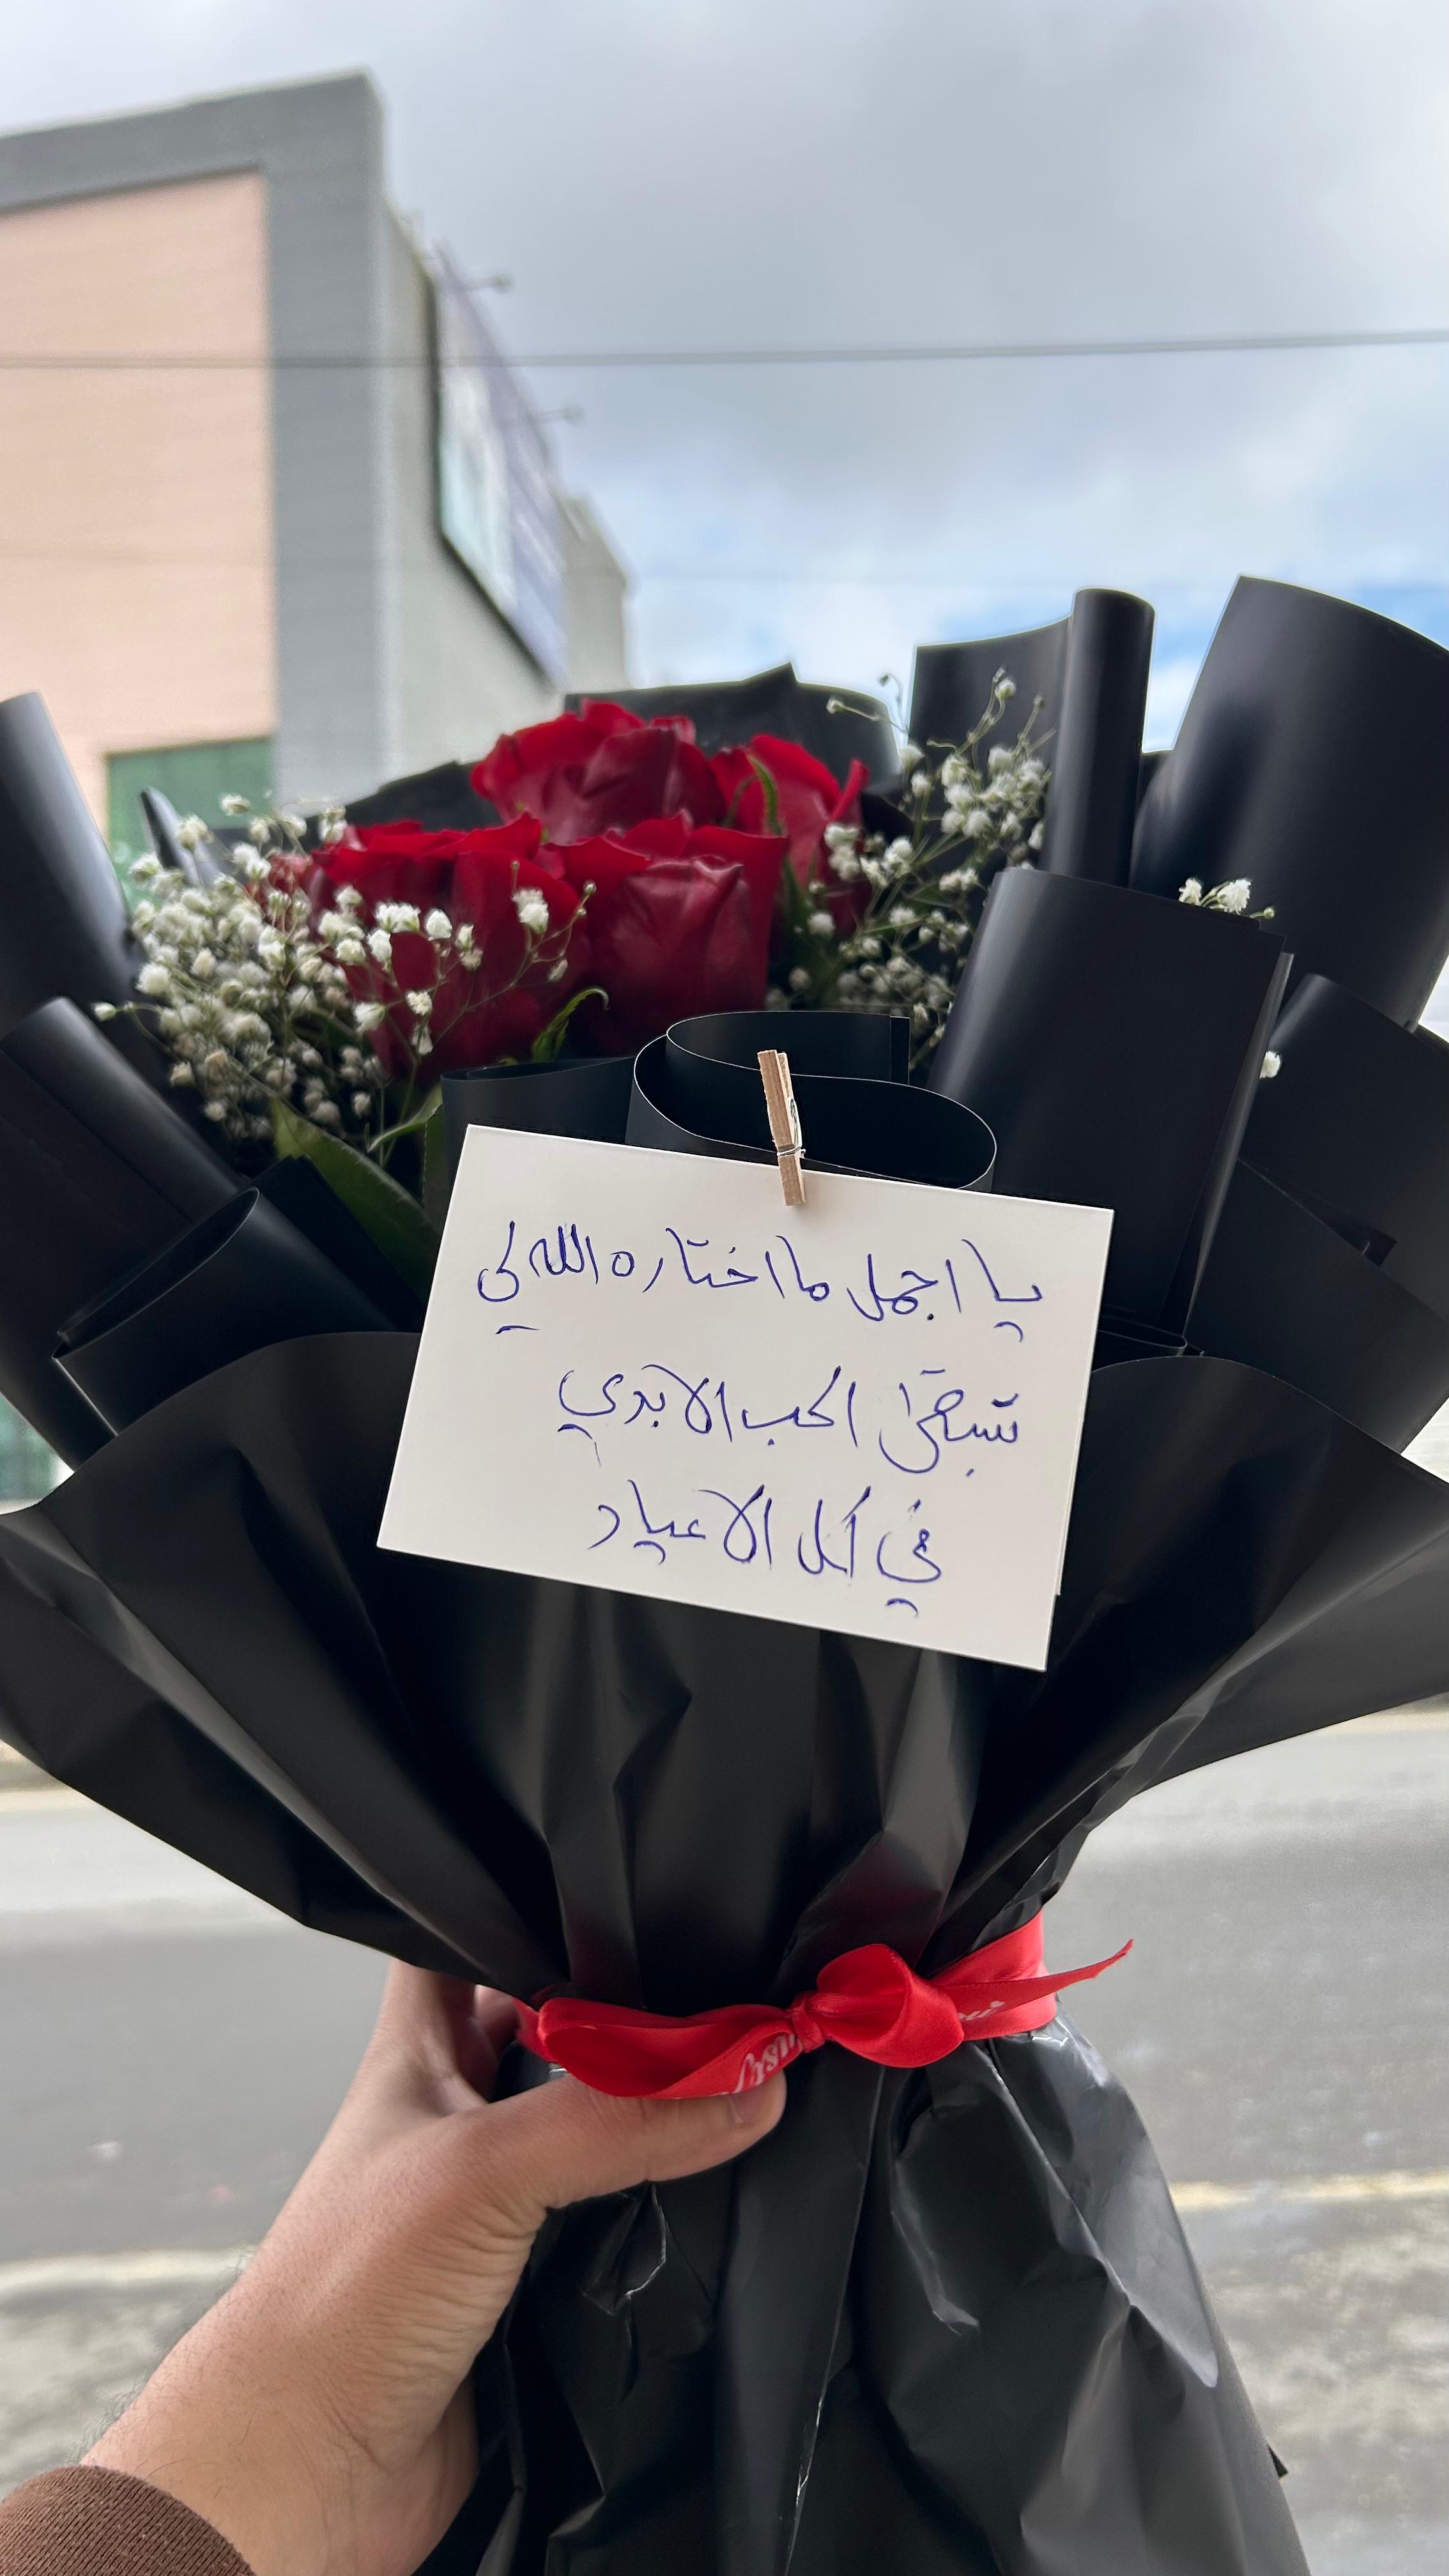 يا اجمل ما اختاره الله لي
ستبقى الحب الابدي
في كل الاعياد